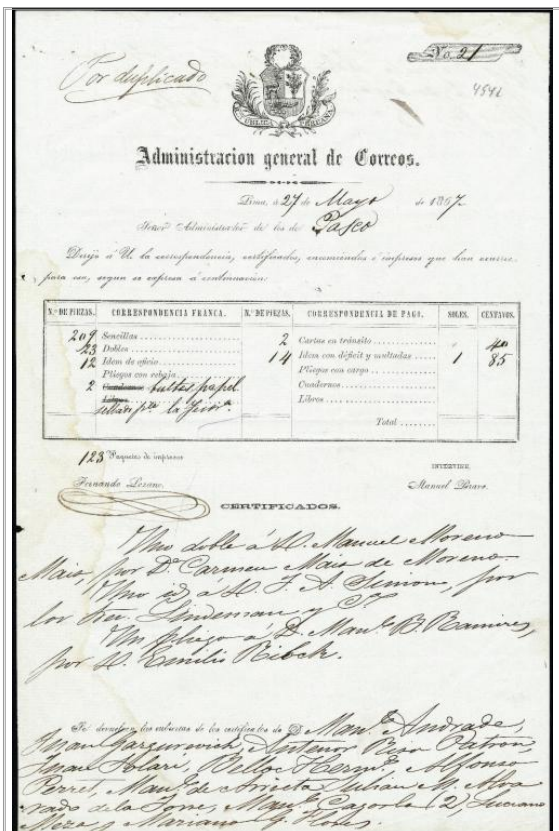 Por duplicado
No. 21
4542
REPUBLICA PERUANA
Administracion general de Correos.
Lima, á 27 de Mayo de 1897
Señor Administrador de los de Pasco
Dirijo á U. la correspondencia, certificados, encomiendas é impresos que han ocurrido
para esa, segun se espresa á continuacion:
N.º DE PIEZAS. CORRESPONDENCIA FRANCA. N.º DE PIEZAS. CORRESPONDENCIA DE PAGO. SOLES. CENTAVOS.
209 Sencillas 2 Cartas en tránsito 40
23 Dobles 14 Idem con déficit y multadas 1 85
12 Idem de oficio Pliegos con cargo
Pliegos con rebaja Cuadernos
2 Cuadernos bultos papel Libros
Libros sellado pª la
Total
123 Paquetes de impresos
INTERVINE,
Fernando Lozano. Manuel Bravo.
CERTIFICADOS.
Uno doble á D. Manuel Moreno
Maiz, por Dª Carmen Maiz de Moreno
Uno id á D. J. A. Simons, por
los Sres. Lindeman y Cª
Un pliego á D. Manl. B. Ramires,
por D. Emilio Ribck.
Se devuelven las cubiertas de los certificados de D. Manl. Andrade,
Juan Gazzurovich, Antenor Rizo Patron,
Juan Solari, Bellos Hermos, Alfonso
Perret, Manl. de Arrieta, Julian M. Alva
rado de la Torre, Manl. Cazorla (2), Luciano
Meza y Mariano G. Flores.